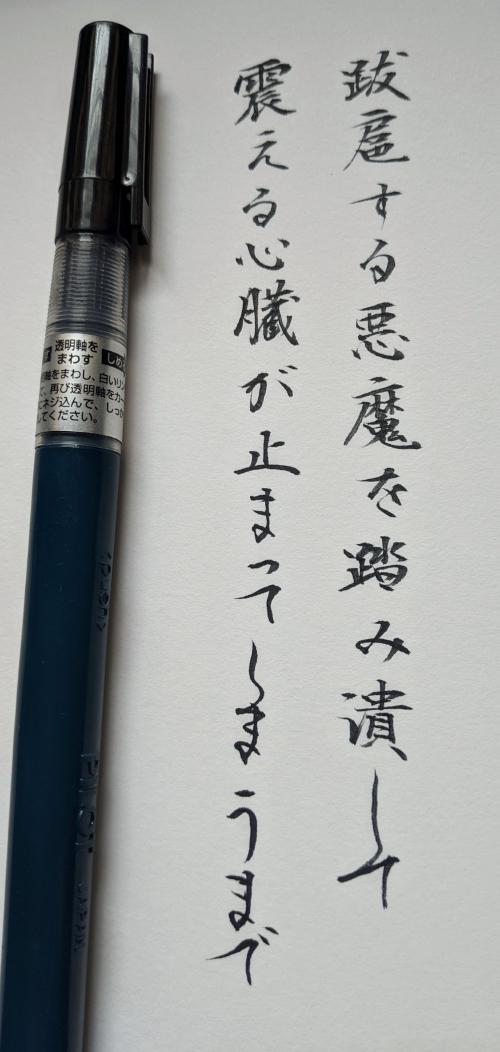 跋扈する悪魔を踏み潰して
震える心臓が止まってしまうまで
透明軸を
まわす
軸をまわし、白いリン
、再び透明軸をカー
ネジ込んで、しっか
てください。